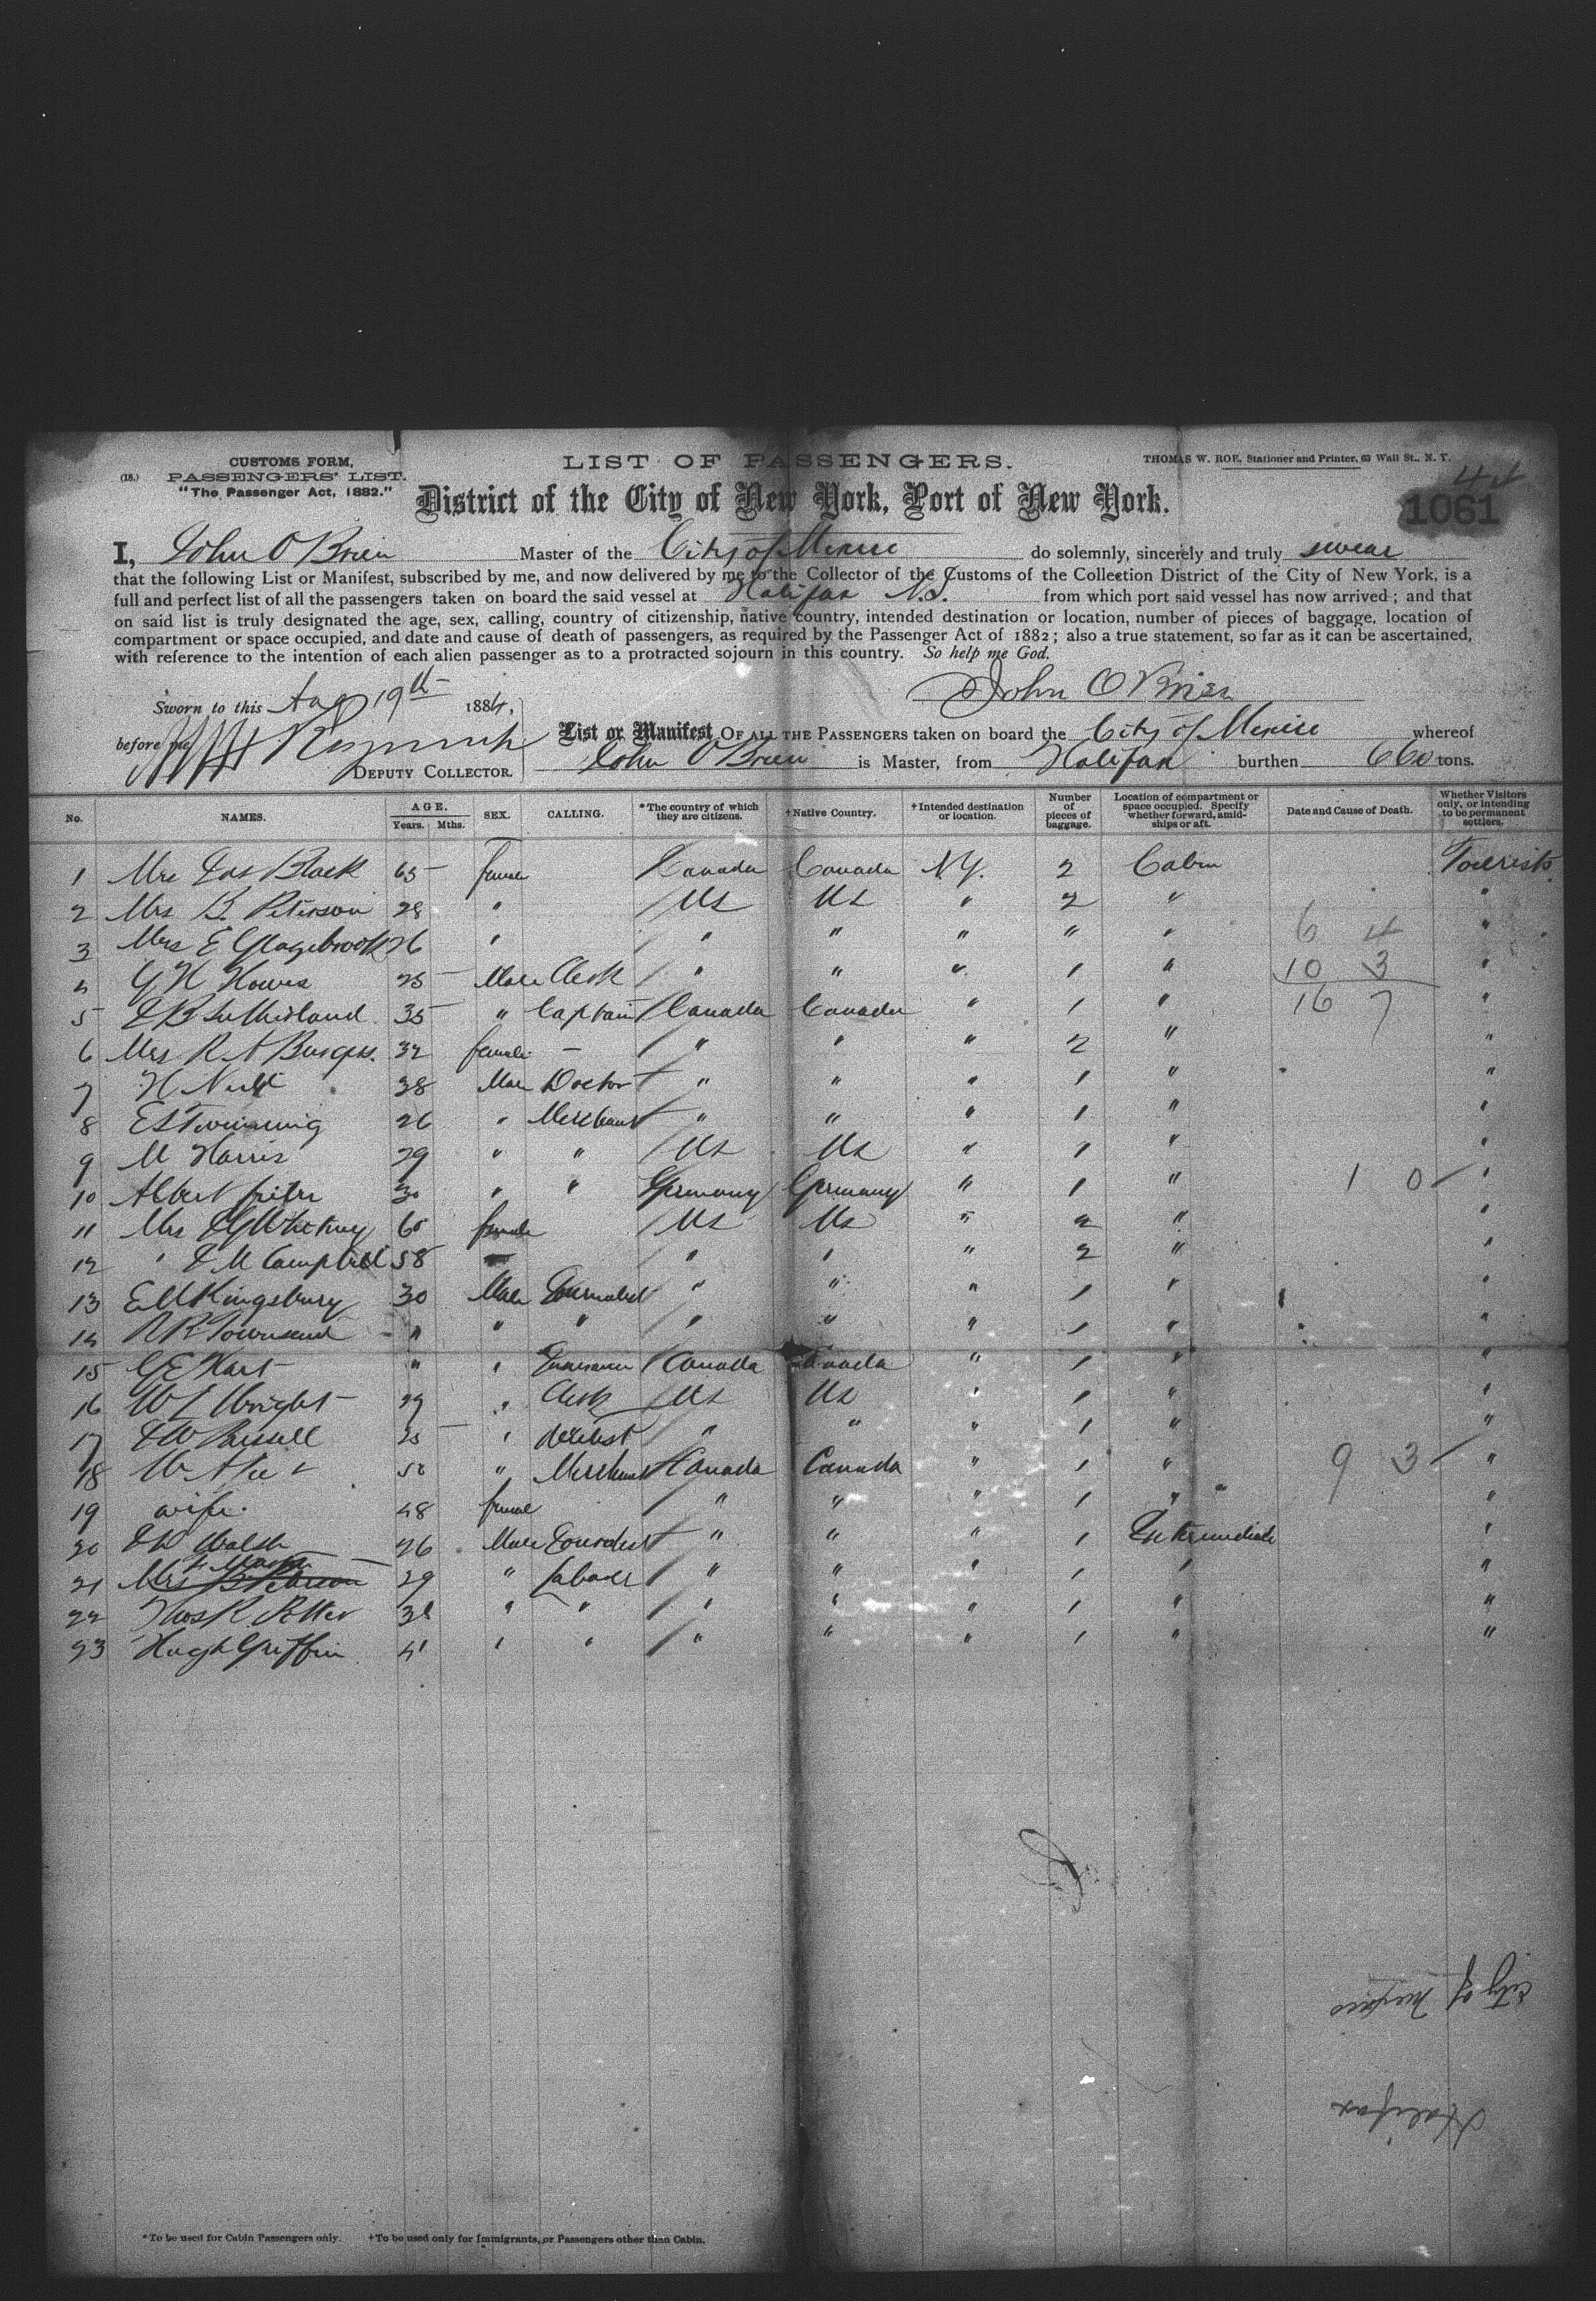 CUSTOMS FORM,
(18.) PASSENGERS' LIST.
"The Passenger Act, 1882."
LIST OF PASSENGERS.
THOMAS W. ROE, Stationer and Printer, 63 Wall St., N. Y.
44
1061
District of the City of New York, Port of New York.
I, John O'Brien Master of the City of Mexico do solemnly, sincerely and truly swear
that the following List or Manifest, subscribed by me, and now delivered by me to the Collector of the Customs of the Collection District of the City of New York, is a
full and perfect list of all the passengers taken on board the said vessel at Halifax N.S. from which port said vessel has now arrived; and that
on said list is truly designated the age, sex, calling, country of citizenship, native country, intended destination or location, number of pieces of baggage, location of
compartment or space occupied, and date and cause of death of passengers, as required by the Passenger Act of 1882; also a true statement, so far as it can be ascertained,
with reference to the intention of each alien passenger as to a protracted sojourn in this country. So help me God.
John O'Brien
Sworn to this Aug 19th 1884,
before me
DEPUTY COLLECTOR.
List or Manifest OF ALL THE PASSENGERS taken on board the City of Mexico whereof
John O'Brien is Master, from Halifax burthen 660 tons.
No. NAMES. AGE. Years. Mths. SEX. CALLING. *The country of which they are citizens. †Native Country. †Intended destination or location. Number of pieces of baggage. Location of compartment or space occupied. Specify whether forward, amidships or aft. Date and Cause of Death. Whether Visitors only, or intending to be permanent settlers.
1 Mrs Black 65 female Canada Canada N.Y. 2 Cabin Tourists
2 Mrs B. Peterson 28 " US US " 2 " "
3 Mrs E Glazebrook 26 " " " " " " 6 4 "
4 G H Howes 25 Male Clerk " " " 1 " 10 3 "
5 Sutherland 35 " Captain Canada Canada " 1 " 16 7 "
6 Mrs R A Burgess. 32 female — " " " 2 " "
7 H 38 Male Doctor " " " 1 " "
8 E S Twinning 26 " Merchant " " " 1 " "
9 M Harris 29 " " US US " 1 " "
10 Albert 30 " " Germany Germany " 1 " 1 0 "
11 Mrs Whitney 60 female US US " 2 " "
12 " M Campbell 58 " " " 2 " "
13 E M Kingsbury 30 Male Journalist " " " 1 " "
14 Townsend " " " " " " 1 " "
15 G E Hart " " Canada Canada " 1 " "
16 W L Wright 29 " Clerk US US " 1 " "
17 25 " " " " 1 " "
18 W 50 " Merchant Canada Canada " 1 " 9 3 "
19 wife 48 female " " " 1 " "
20 Walsh 26 Male " " " 1 Intermediate "
21 Mrs 29 " Laborer " " " 1 " "
22 Thos R. Potter 38 " " " " " 1 " "
23 Hugh Griffin 41 " " " " " 1 " "
City of Mexico
Halifax
*To be used for Cabin Passengers only. †To be used only for Immigrants, or Passengers other than Cabin.